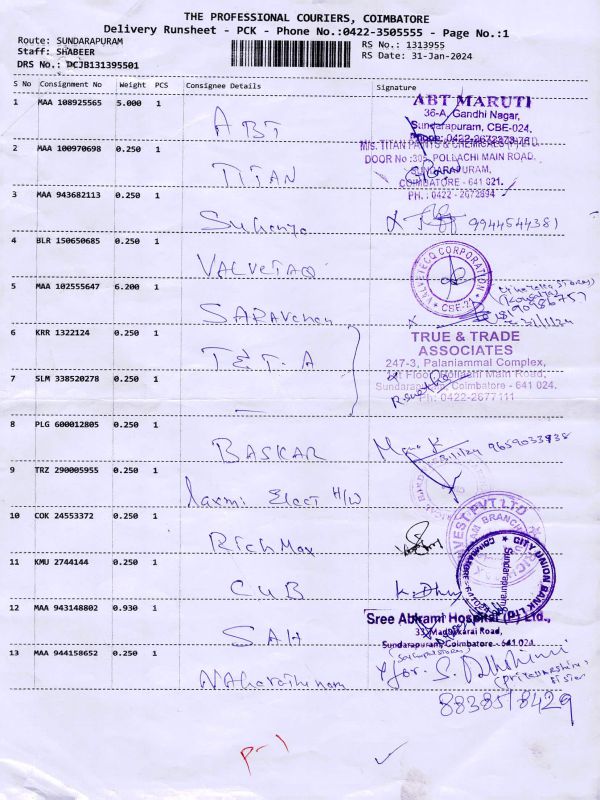 THE PROFESSIONAL COURIERS, COIMBATORE
Delivery Runsheet - PCK - Phone No.:0422-3505555 - Page No.:1
Route: SUNDARAPURAM
Staff: SHABEER
DRS No.: DCJB131395501
RS No.: 1313955
RS Date: 31-Jan-2024
S No Consignment No Weight PCS Consignee Details Signature
1 MAA 108925565 5.000 1 ABT
ABT MARUTI
36-A, Gandhi Nagar,
Sundarapuram, CBE-024.
2 MAA 100970698 0.250 1 TITAN
M/s. TITAN PAINTS & CHEMICALS
DOOR No :305, POLLACHI MAIN ROAD,
SUNDARAPURAM,
COIMBATORE - 641 021.
PH. : 0422 - 2672894
3 MAA 943682113 0.250 1
9944544381
4 BLR 150650685 0.250 1 VALVETAQ
VALVETECQ CORPORATION
CBE-21
5 MAA 102555647 6.200 1
6 KRR 1322124 0.250 1 T & T. A
TRUE & TRADE
ASSOCIATES
247-3, Palaniammal Complex,
1st Floor, Pollachi Main Road,
Sundarapuram, Coimbatore - 641 024.
Ph: 0422-2677111
7 SLM 338520278 0.250 1
8 PLG 600012805 0.250 1 BASKAR
9659033938
9 TRZ 290005955 0.250 1 laxmi Elect H/W
10 COK 24553372 0.250 1 RichMax
INVEST PVT LTD
11 KMU 2744144 0.250 1 CUB
CITY UNION BANK LTD
Sundarapuram
COIMBATORE
12 MAA 943148802 0.930 1 SAH
Sree Abirami Hospital (P) Ltd.,
33, Madukkarai Road,
Sundarapuram, Coimbatore - 641 024
13 MAA 944158652 0.250 1
for. S.
8838518429
P-1